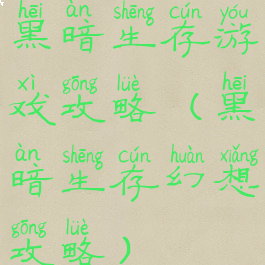 hēi àn shēng cún yóu
黑暗生存游
xì gōng lüè hēi
戏攻略（黑
àn shēng cún huàn xiǎng
暗生存幻想
gōng lüè
攻略）